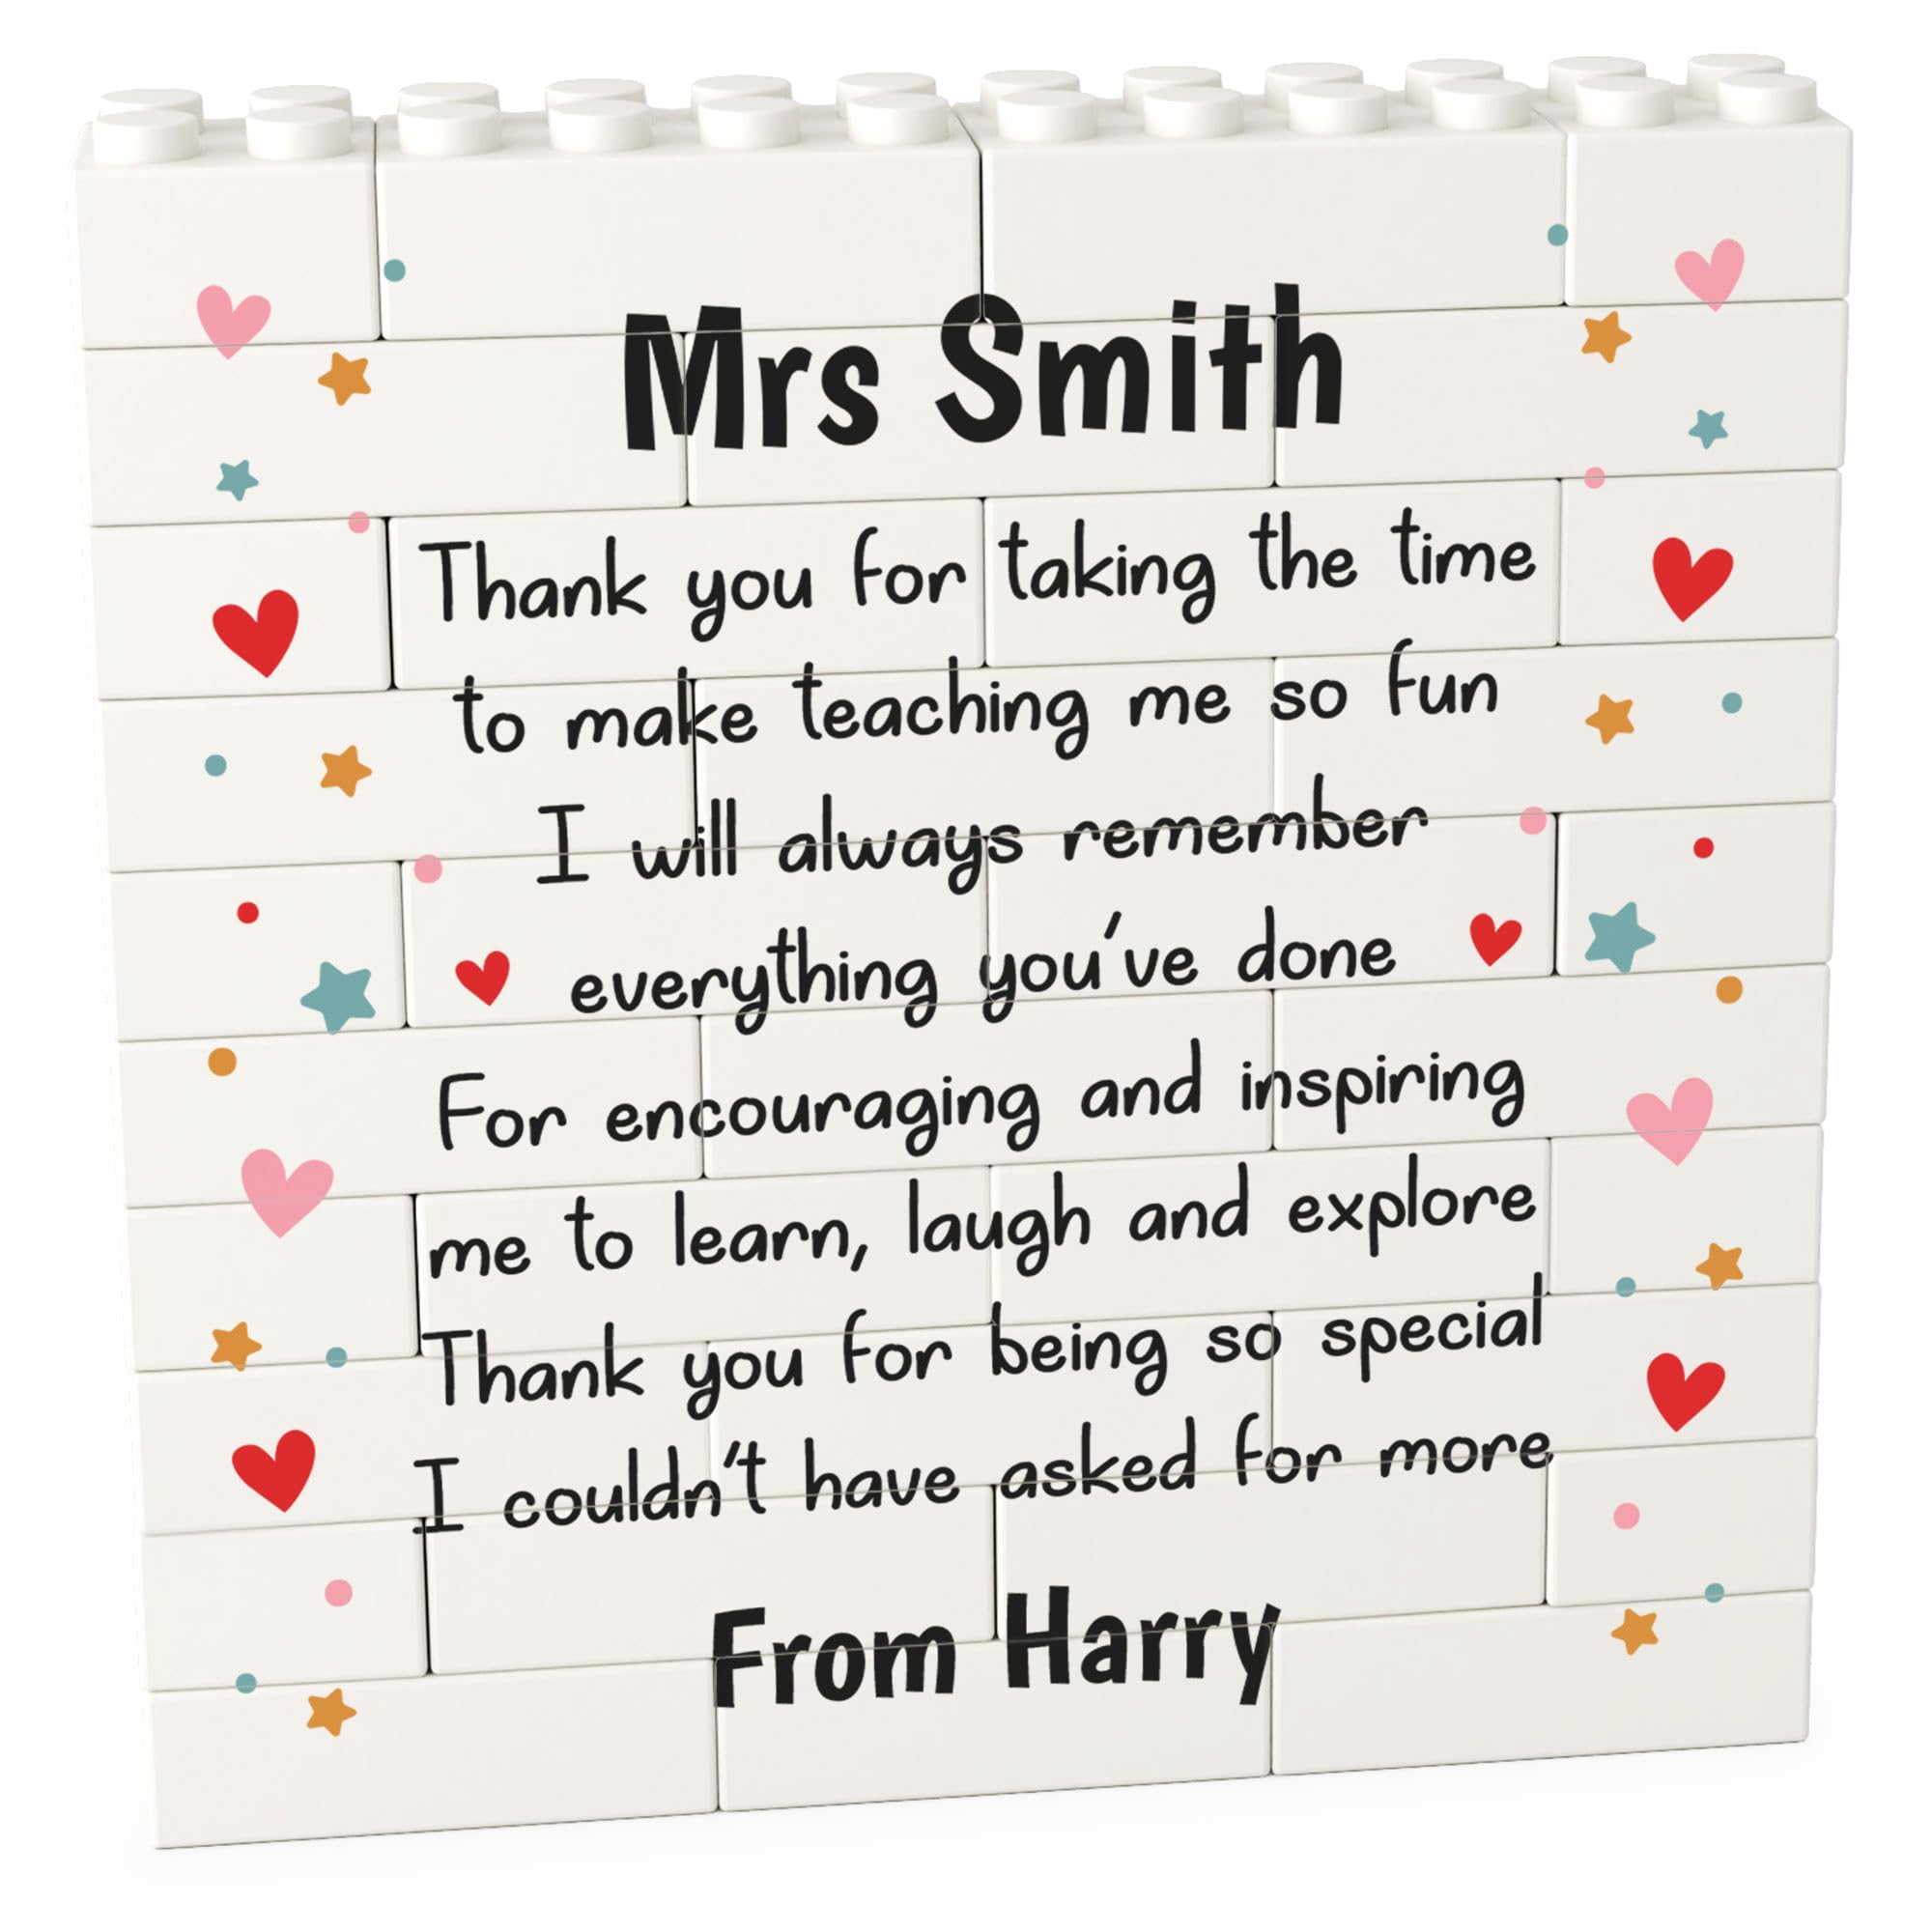 Mrs Smith
Thank you for taking the time
to make teaching me so fun
I will always remember
everything you've done
For encouraging and inspiring
me to learn, laugh and explore
Thank you for being so special
I couldn't have asked for more
From Harry